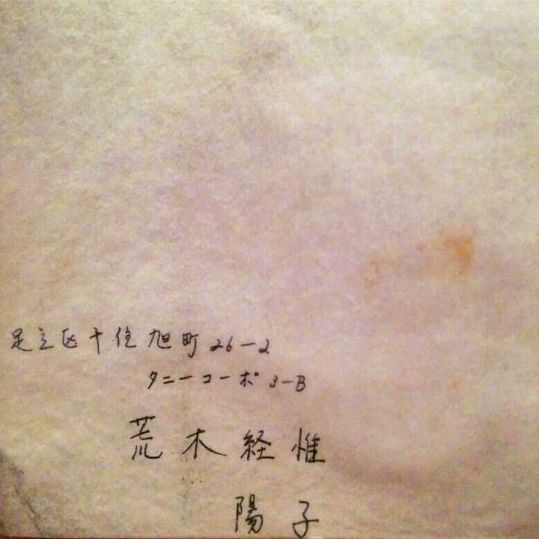 足立区千住旭町26-2
タニーコーポ3-B
荒木経惟
陽子